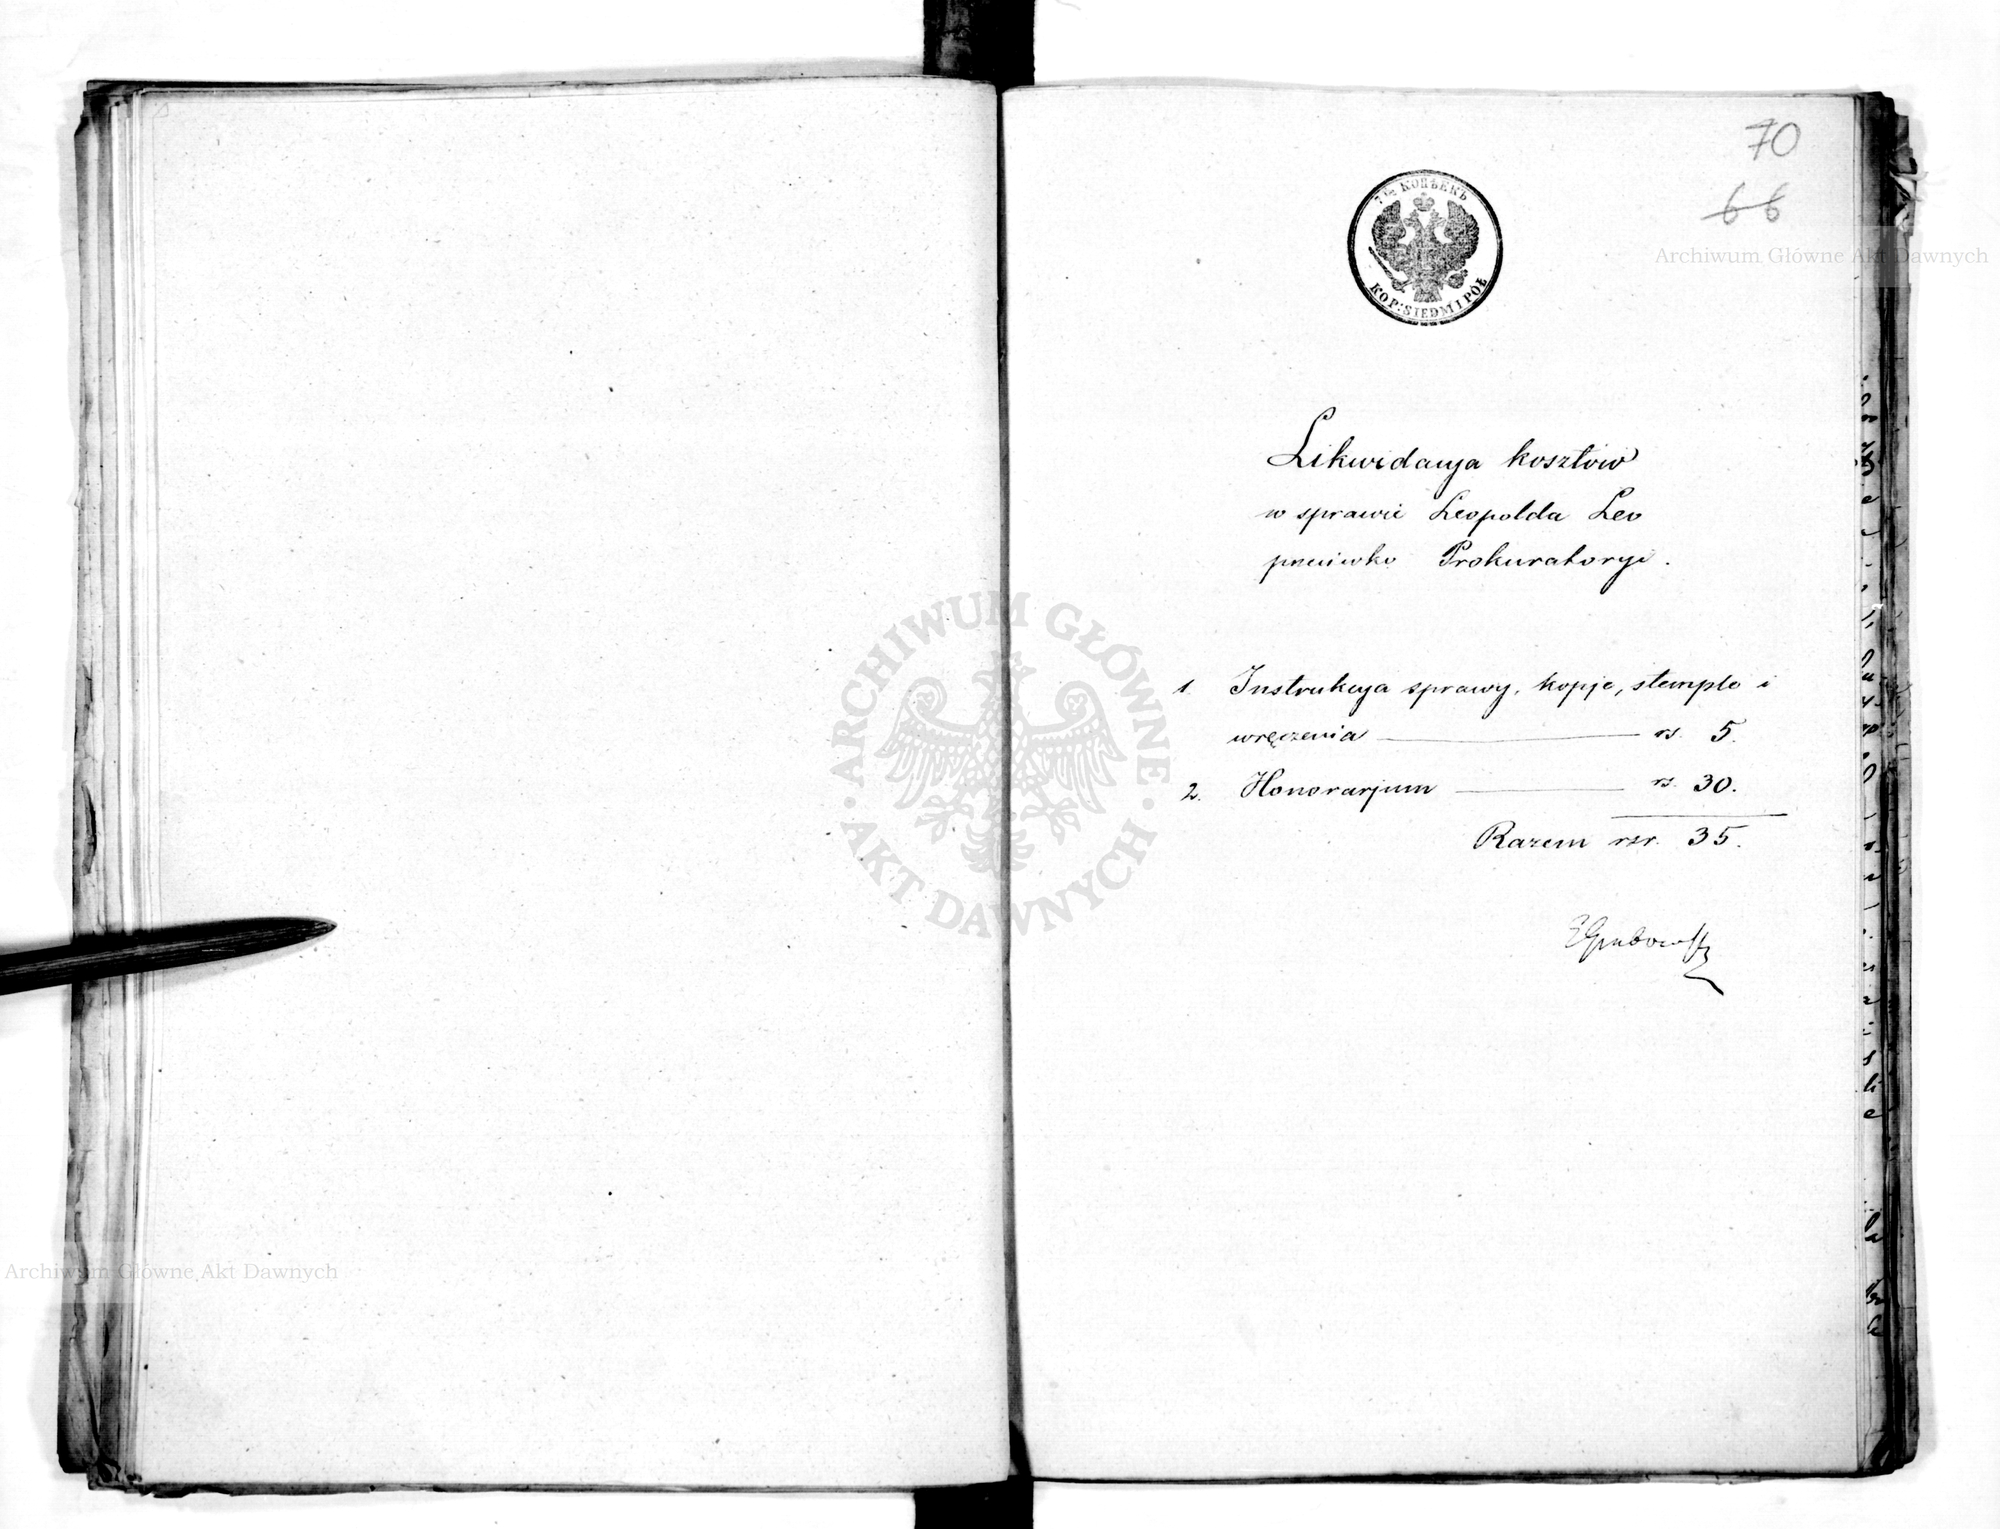 70
66
7½ КОПѢЕКЪ
KOP: SIEDM I PÓŁ
Archiwum Główne Akt Dawnych
Likwidacya kosztów
w sprawie Leopolda Leo
przeciwko Prokuratoryi.
1. Instrukcya sprawy, kopje, stemple i
wręczenia rs. 5.
2. Honorarjum rs. 30.
Razem rsr. 35.
ARCHIWUM GŁÓWNE
AKT DAWNYCH
Archiwum Główne Akt Dawnych